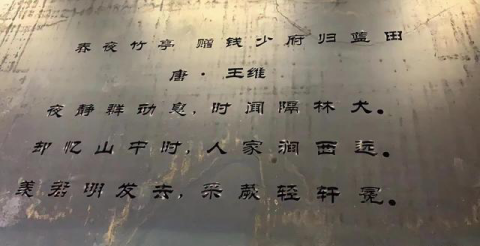 春夜竹亭 赠钱少府归蓝田
唐·王维
夜静群动息,时闻隔林犬。
却忆山中时,人家涧西远。
羡君明发去,采蕨轻轩冕。